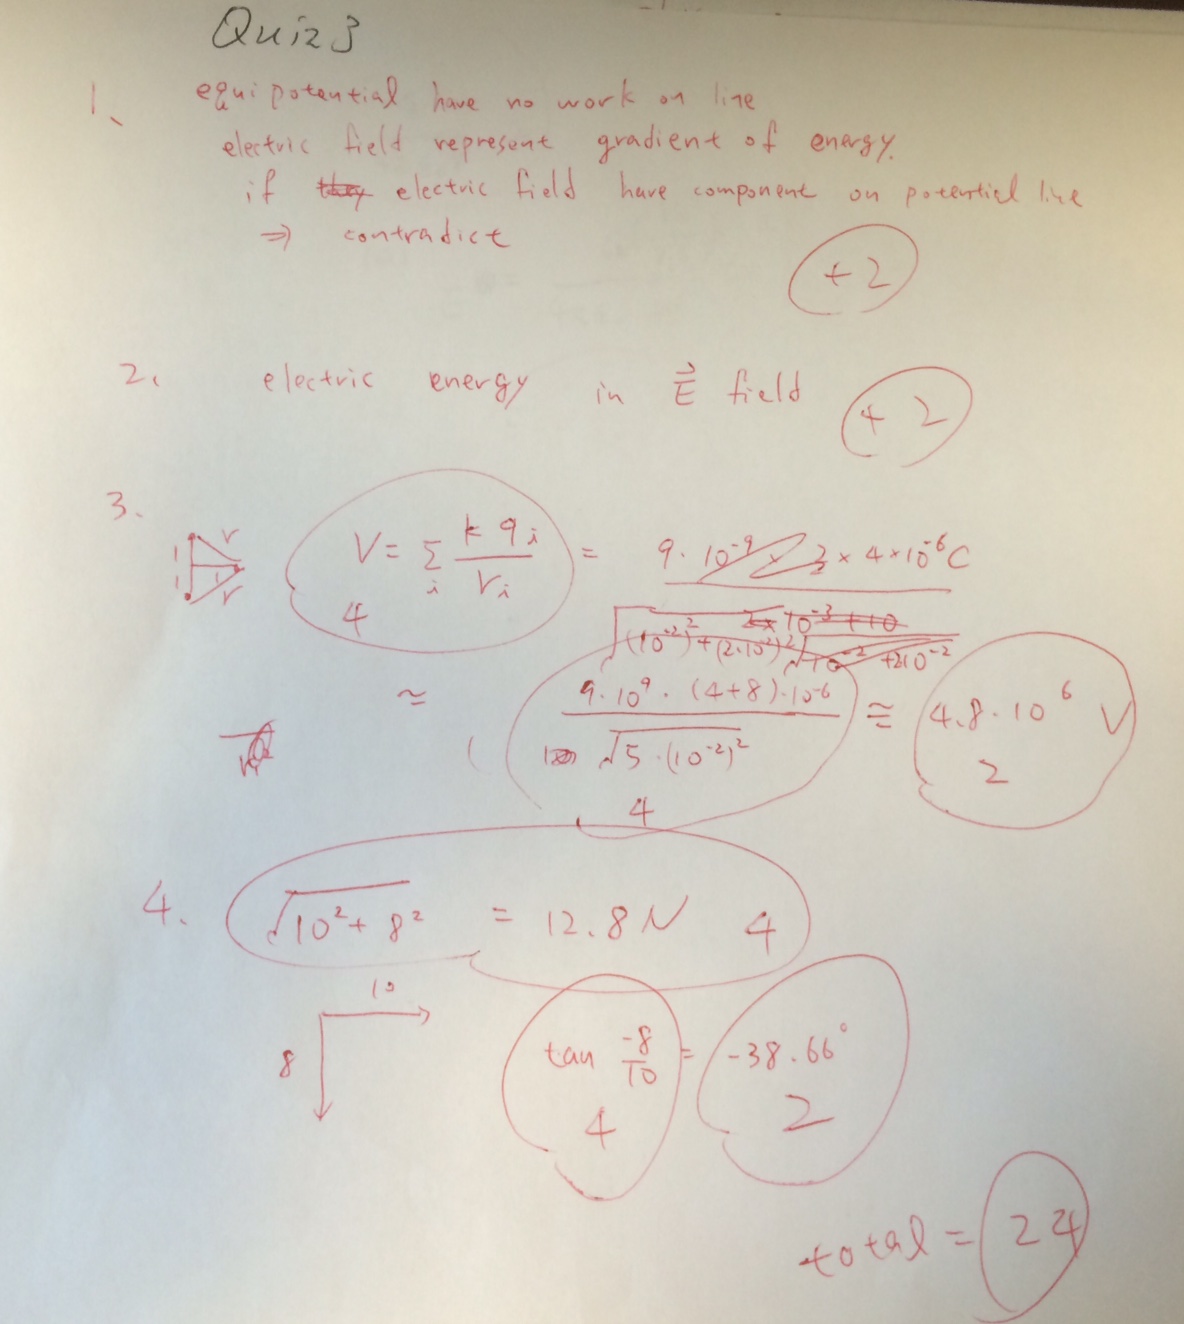 Quiz 3
1. equipotential have no work on line
electric field represent gradient of energy.
if they electric field have component on potential line
⇒ contradict
+2
2. electric energy in E⃗ field
+2
3.
1 r
1 r
V = Σ_i k q_i / r_i = 9·10^-9 × 2 × 4×10^-6 C
4
√(10^-2)^2 + (2·10^-2)^2
≈ 9·10^9 · (4+8)·10^-6 / √5·(10^-2)^2 ≅ 4.8·10^6 V
4 2
4. √10² + 8² = 12.8 N 4
10
8
tan -8/10 = -38.66°
4 2
total = 24